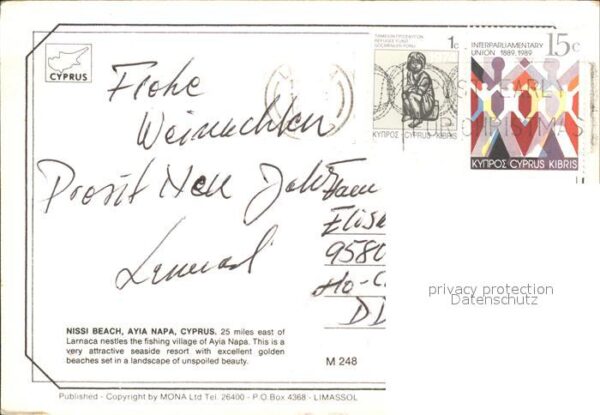 CYPRUS
ΤΑΜΕΙΟΝ ΠΡΟΣΦΥΓΩΝ
REFUGEE FUND
GÖÇMENLER FONU
1c
ΚΥΠΡΟΣ CYPRUS KIBRIS
INTERPARLIAMENTARY
UNION 1889.1989
15c
ΚΥΠΡΟΣ CYPRUS KIBRIS
POST EARLY
FOR CHRISTMAS
Frohe
Weinachten
Prosit Neu Jahr
9580
Ho-
DD
privacy protection
Datenschutz
NISSI BEACH, AYIA NAPA, CYPRUS. 25 miles east of
Larnaca nestles the fishing village of Ayia Napa. This is a
very attractive seaside resort with excellent golden
beaches set in a landscape of unspoiled beauty.
M 248
Published - Copyright by MONA Ltd Tel. 26400 - P.O Box 4368 - LIMASSOL